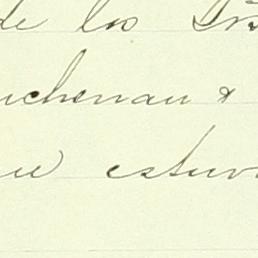 de los
uchenau &
ue estuv